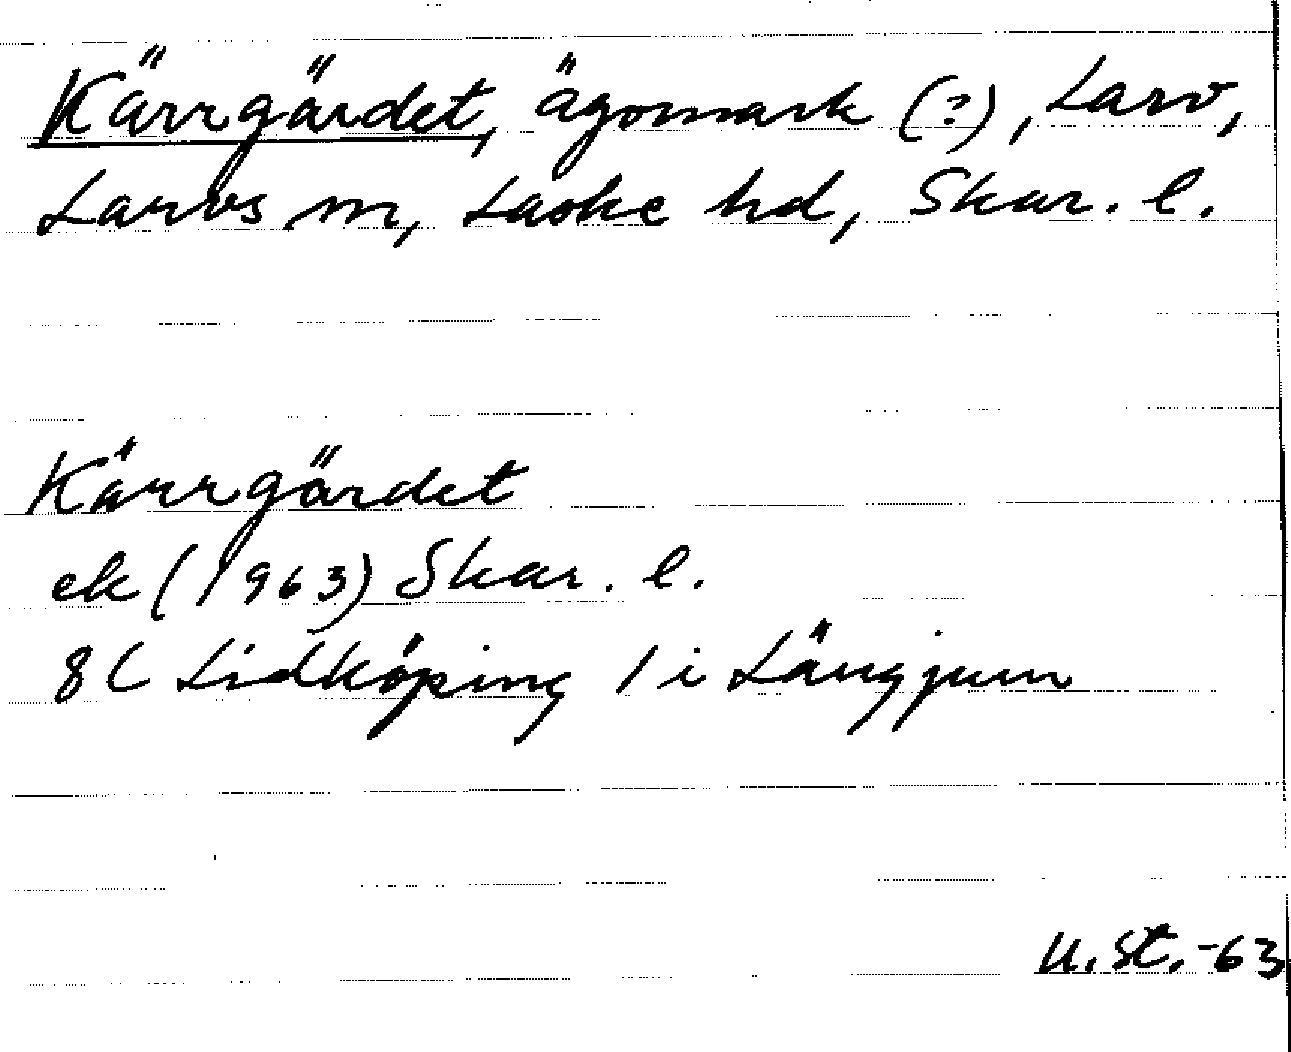 Kärrgärdet, ägomark (?), Larv,
Larvs sn, Laske hd, Skar. l.
Kärrgärdet
ek (1963) Skar. l.
8C Lidköping 1 i Längjum
U. St. -63